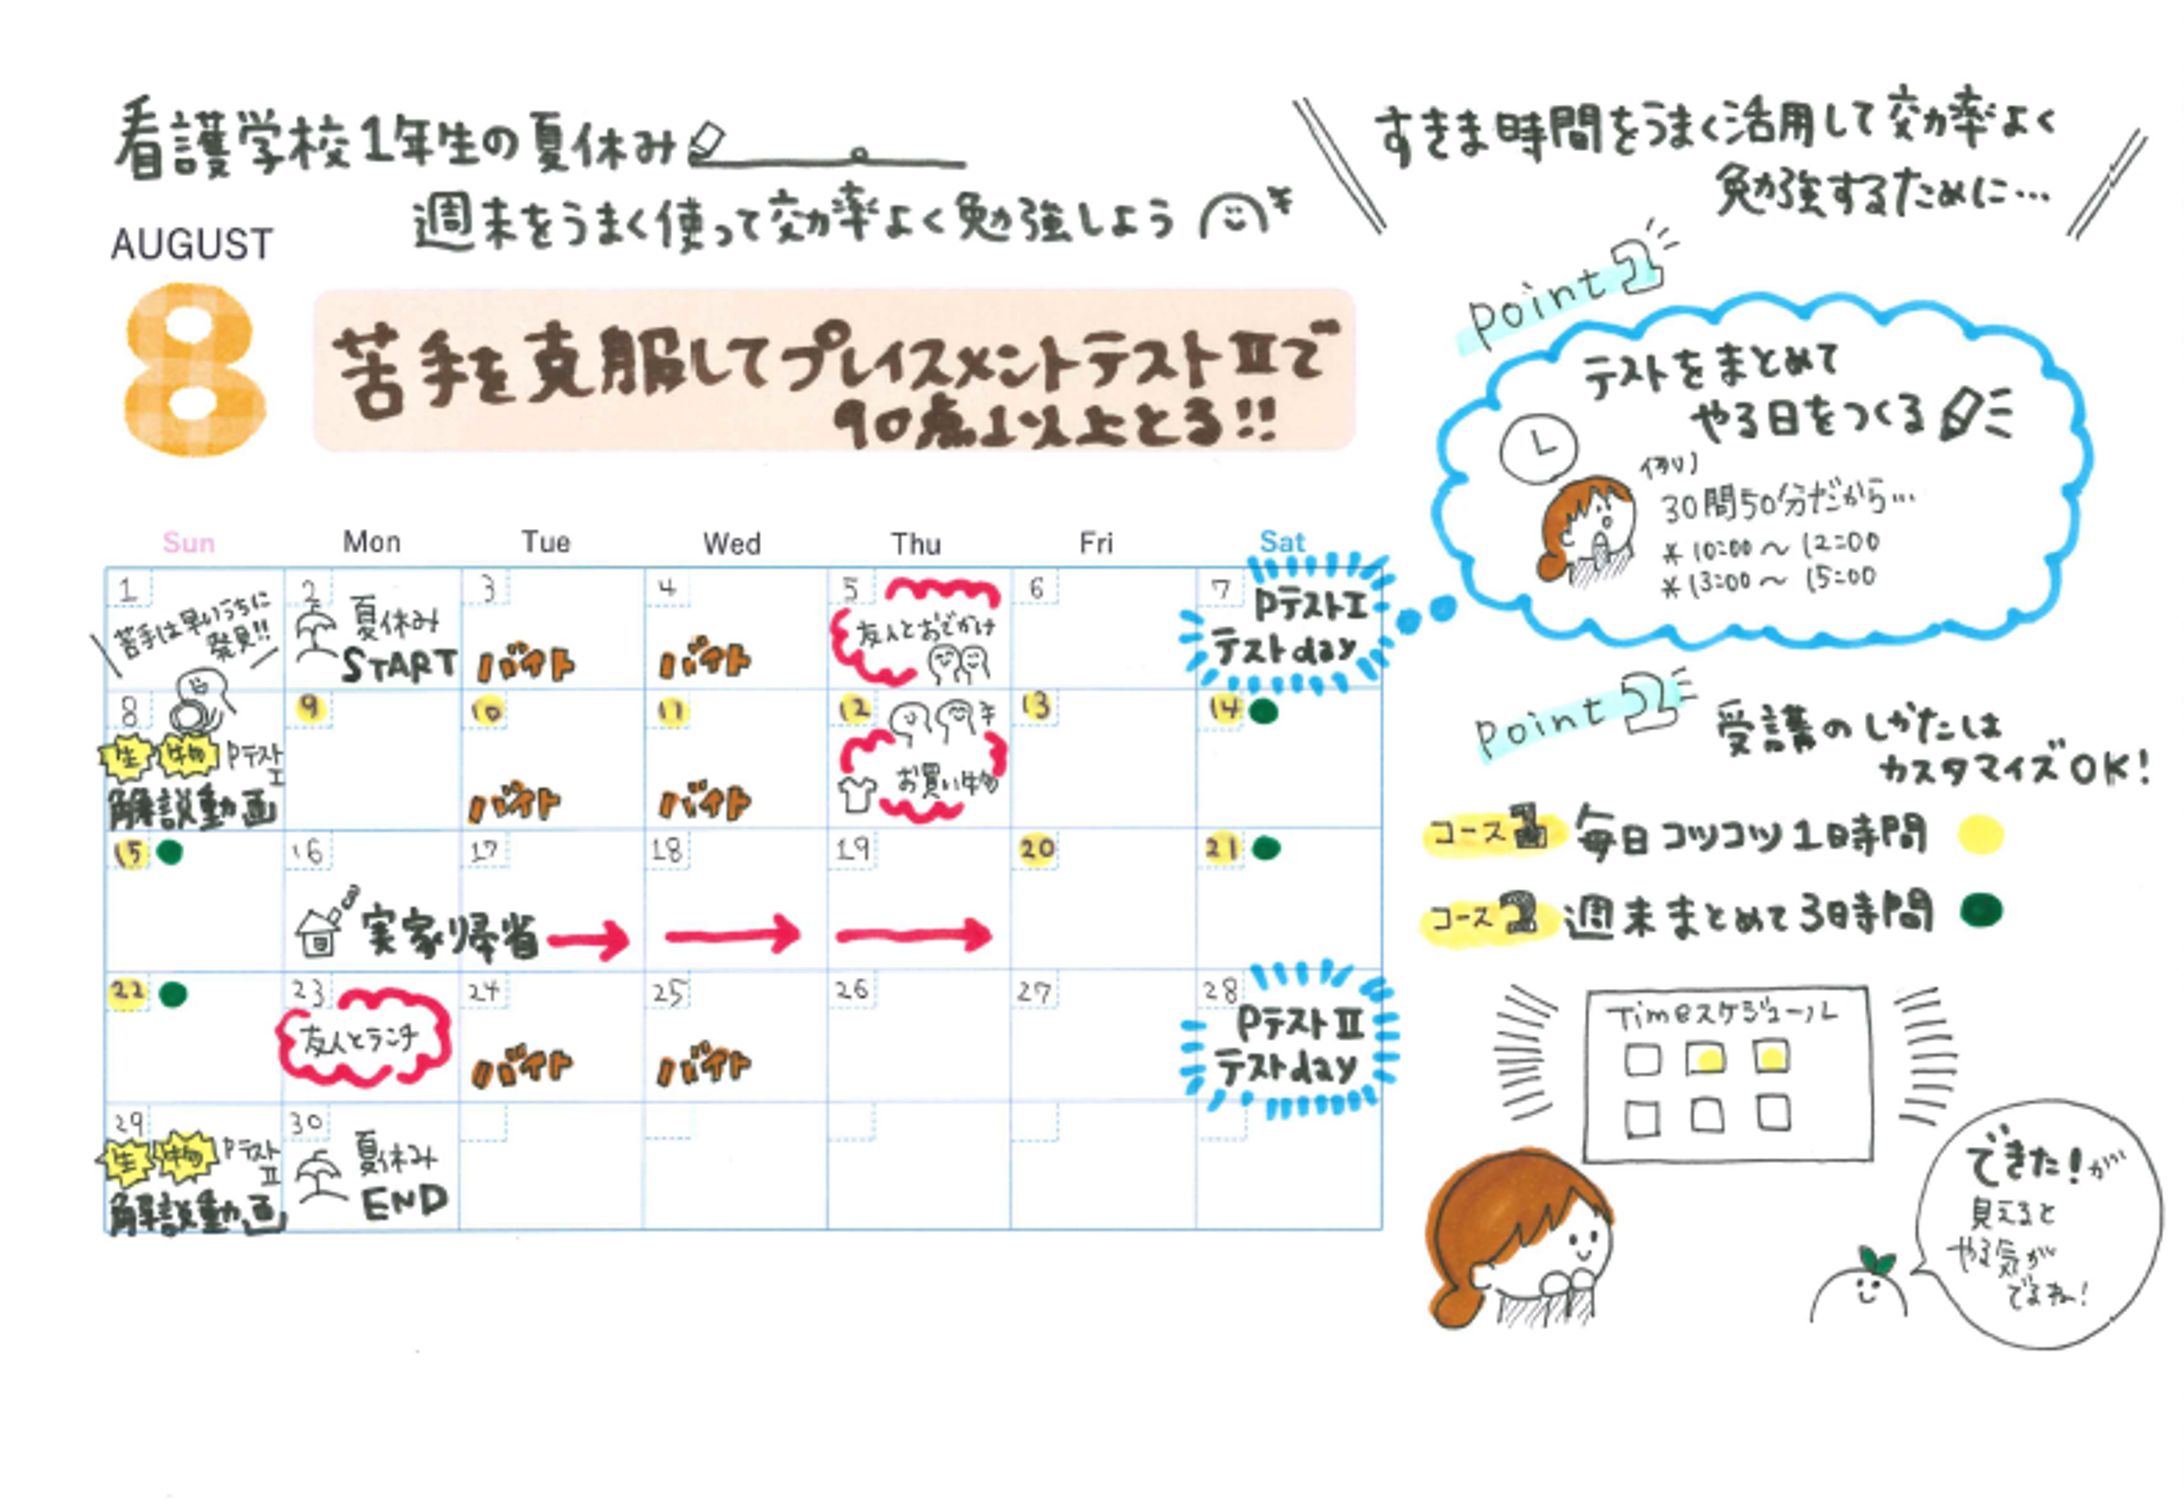 看護学校1年生の夏休み
週末をうまく使って効率よく勉強しよう
AUGUST
8
苦手を克服してプレイスメントテストⅡで
90点以上とる!!
Sun Mon Tue Wed Thu Fri Sat
1
苦手は早いうちに
発見!!
2
夏休み
START
3
バイト
4
バイト
5
友人とおでかけ
6
7
PテストⅠ
テストday
8
生物 Pテスト
Ⅰ
解説動画
9
10
バイト
11
バイト
12
お買い物
13
14
15
16
実家帰省
17
18
19
20
21
22
23
友人とランチ
24
バイト
25
バイト
26
27
28
PテストⅡ
テストday
29
生物 Pテスト
Ⅱ
解説動画
30
夏休み
END
すきま時間をうまく活用して効率よく
勉強するために…
Point 1
テストをまとめて
やる日をつくる
例)
30問50分だから…
*10:00〜12:00
*13:00〜15:00
Point 2
受講のしかたは
カスタマイズOK!
コース1 毎日コツコツ1時間
コース2 週末まとめて3時間
Timeスケジュール
できた!が
見えると
やる気が
でるね!